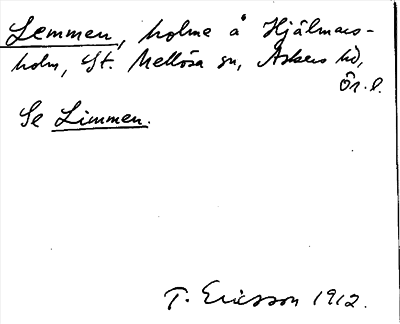 Lemmen, holme å Hjälmars-
holm, St. Mellösa sn, Askers hd,
Ör. l.
Se Limmen.
T. Ericsson 1912.